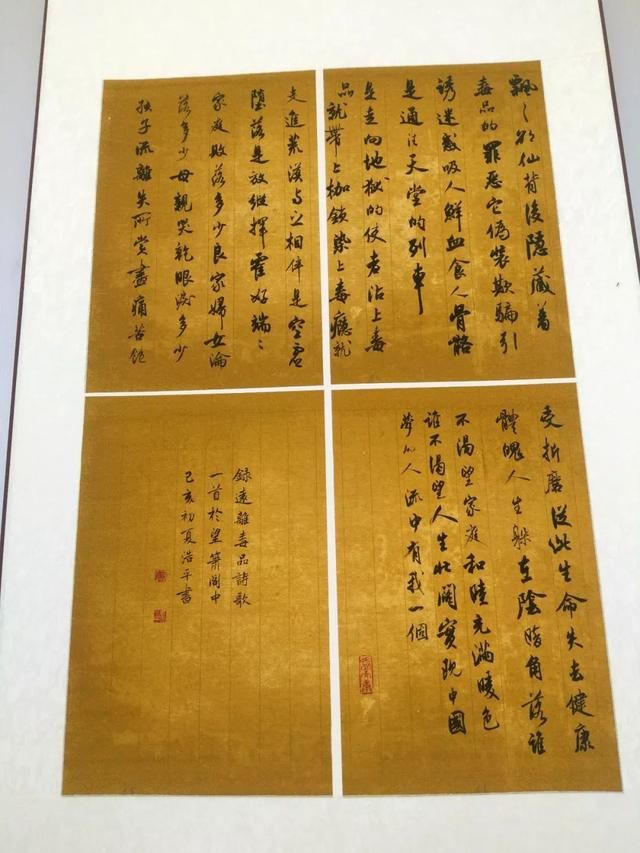 飄〻欲仙背後隱藏着
毒品的罪惡它偽裝欺騙引
誘迷惑吸人鮮血食人骨骼
是通往天堂的列車
是走向地獄的使者沾上毒
品就帶上枷鎖染上毒癮就
走進荒漠与之相伴是空虛
墮落是放縱揮霍好端〻
家庭敗落多少良家婦女淪
落多少母親哭乾眼淚多少
孩子流離失所賞盡痛苦飽
受折磨從此生命失去健康
體魄人生躲在陰暗角落誰
不渴望家庭和睦充滿暖色
誰不渴望人生壯闊實現中國
夢的人流中有我一個
錄遠離毒品詩歌
一首於望簫閣中
己亥初夏浩平書